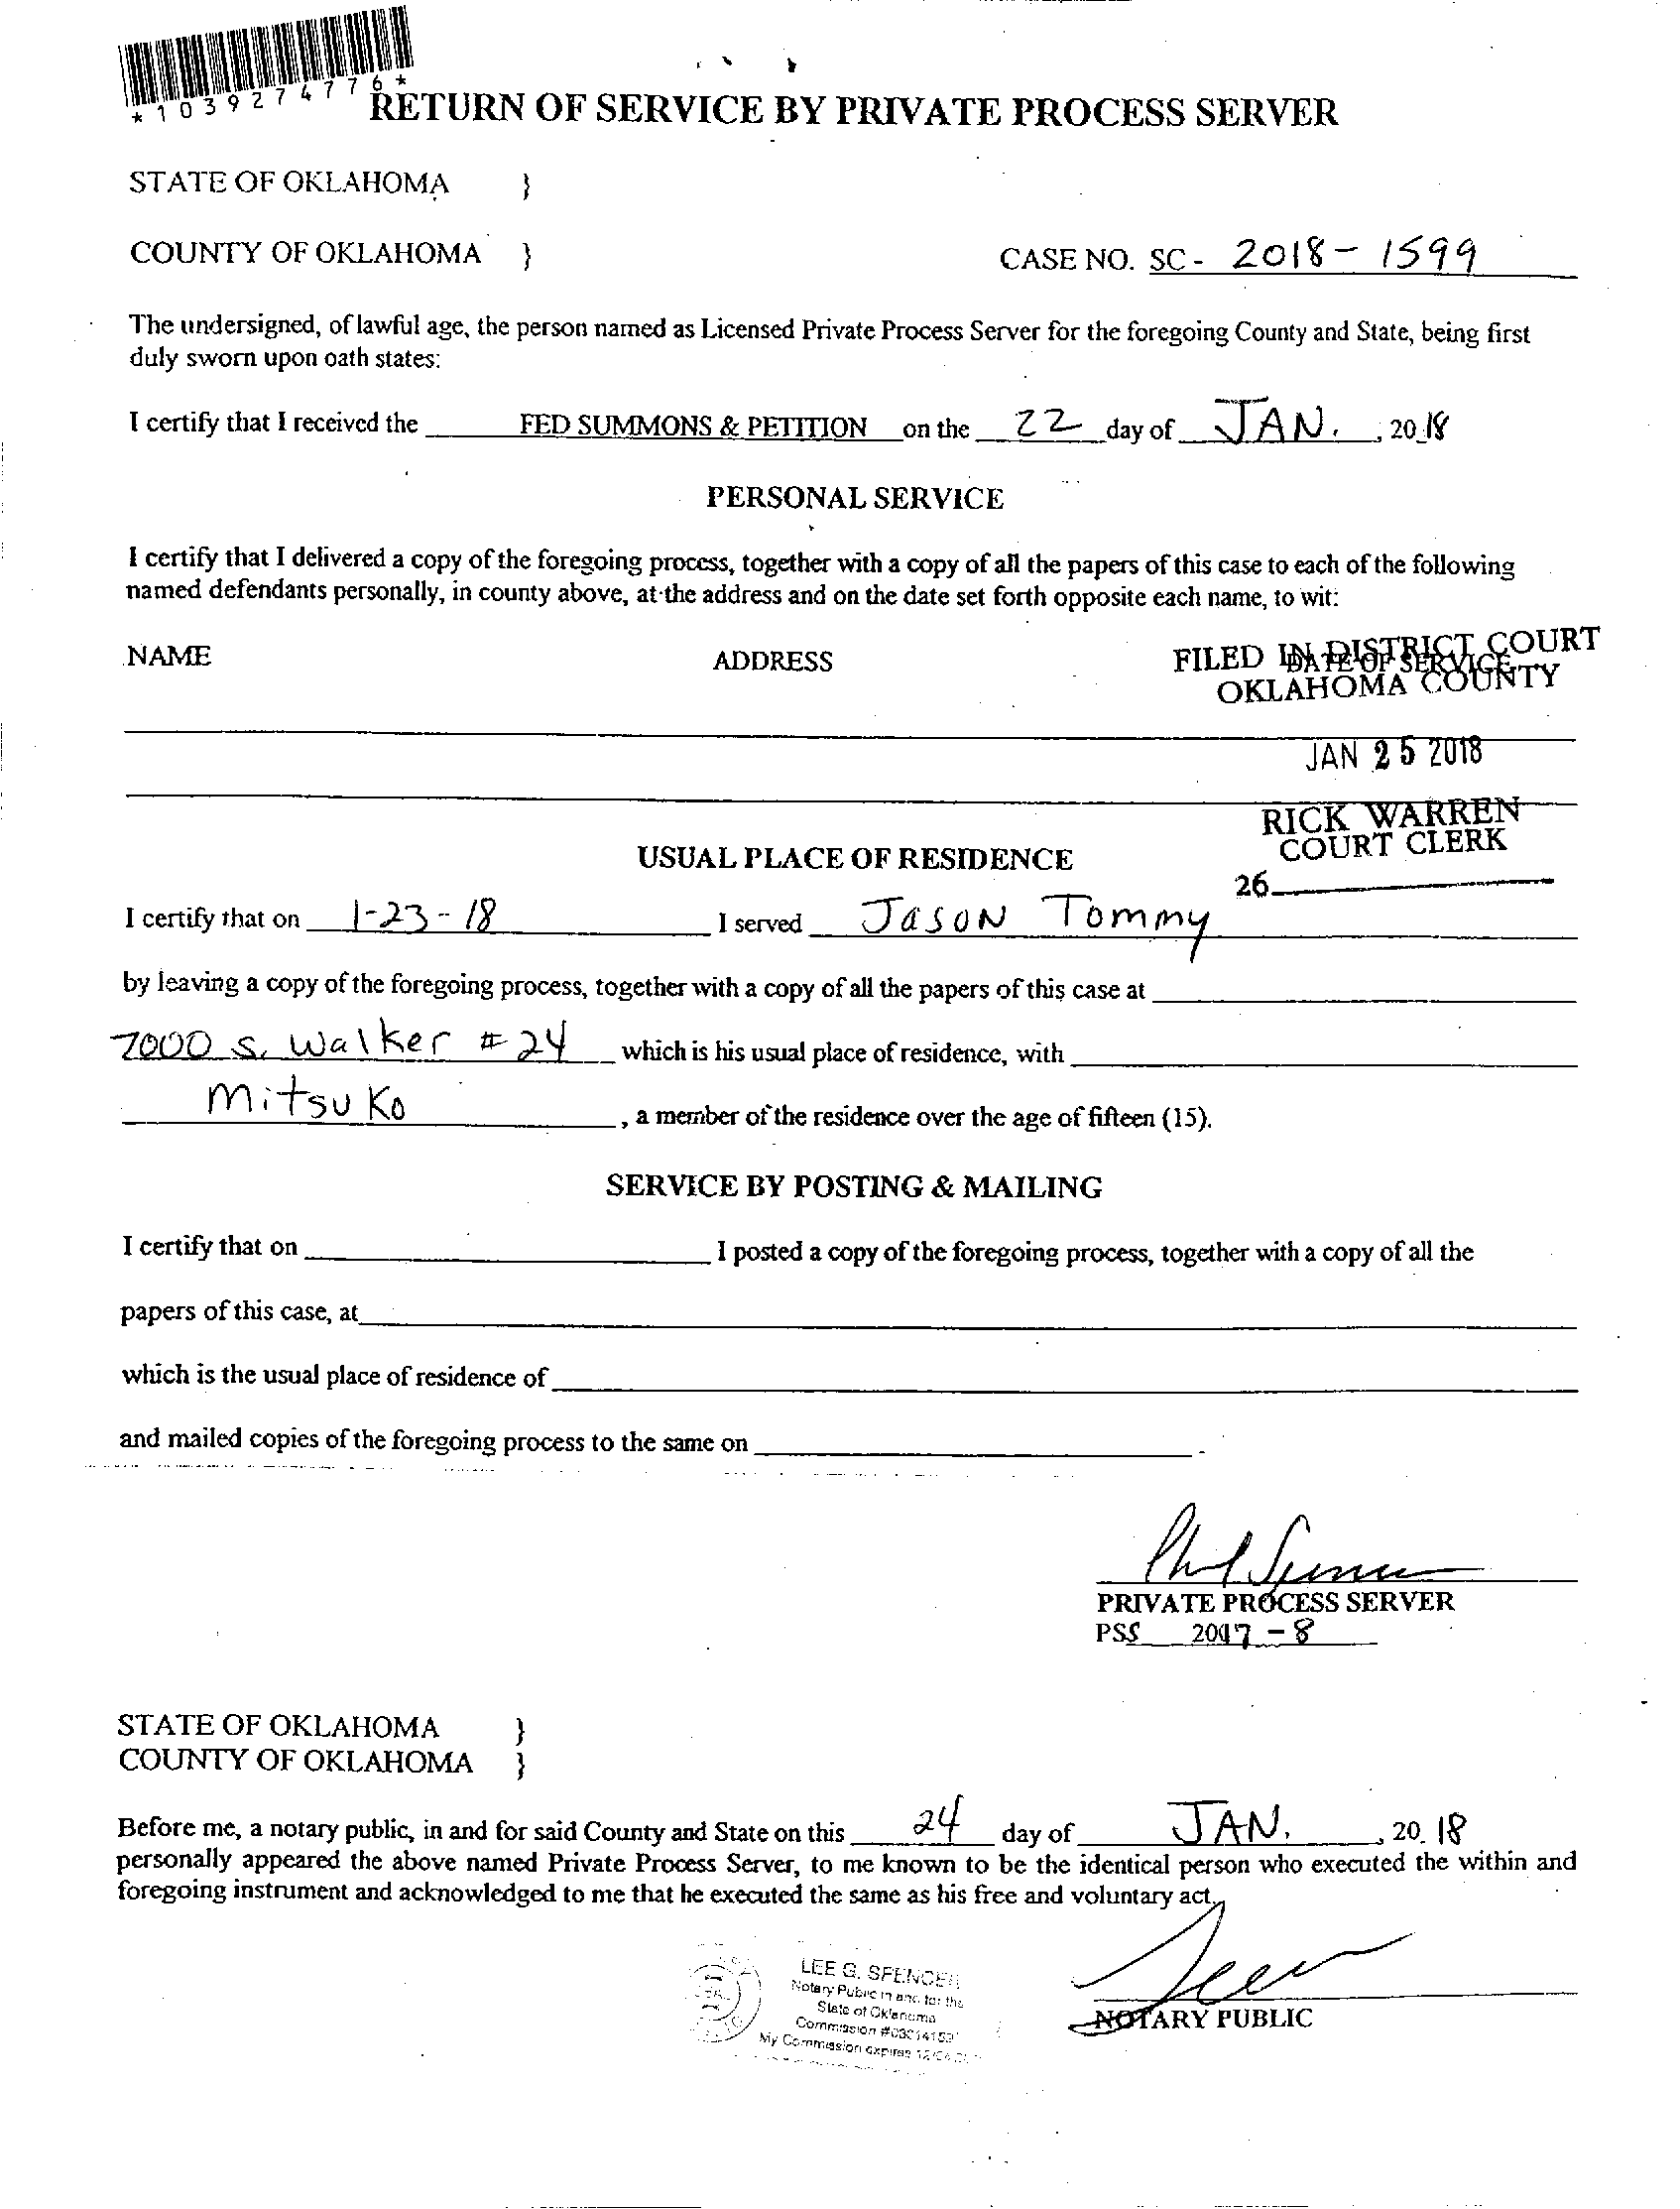 *1039274776*
RETURN OF SERVICE BY PRIVATE PROCESS SERVER
STATE OF OKLAHOMA }
COUNTY OF OKLAHOMA } CASE NO. SC - 2018 - 1599
The undersigned, of lawful age, the person named as Licensed Private Process Server for the foregoing County and State, being first
duly sworn upon oath states:
I certify that I received the FED SUMMONS & PETITION on the 22 day of JAN. , 20 18
PERSONAL SERVICE
I certify that I delivered a copy of the foregoing process, together with a copy of all the papers of this case to each of the following
named defendants personally, in county above, at the address and on the date set forth opposite each name, to wit:
NAME ADDRESS DATE OF SERVICE
FILED IN DISTRICT COURT
OKLAHOMA COUNTY
JAN 25 2018
RICK WARREN
COURT CLERK
26
USUAL PLACE OF RESIDENCE
I certify that on 1-23-18 I served Jason Tommy
by leaving a copy of the foregoing process, together with a copy of all the papers of this case at
7000 S. Walker # 24 which is his usual place of residence, with
Mitsuko , a member of the residence over the age of fifteen (15).
SERVICE BY POSTING & MAILING
I certify that on I posted a copy of the foregoing process, together with a copy of all the
papers of this case, at
which is the usual place of residence of
and mailed copies of the foregoing process to the same on .
PRIVATE PROCESS SERVER
PSS 2017 - 8
STATE OF OKLAHOMA }
COUNTY OF OKLAHOMA }
Before me, a notary public, in and for said County and State on this 24 day of JAN. , 20 18
personally appeared the above named Private Process Server, to me known to be the identical person who executed the within and
foregoing instrument and acknowledged to me that he executed the same as his free and voluntary act.
LEE G. SPENCER
Notary Public in and for the
State of Oklahoma
Commission
My Commission expires
NOTARY PUBLIC